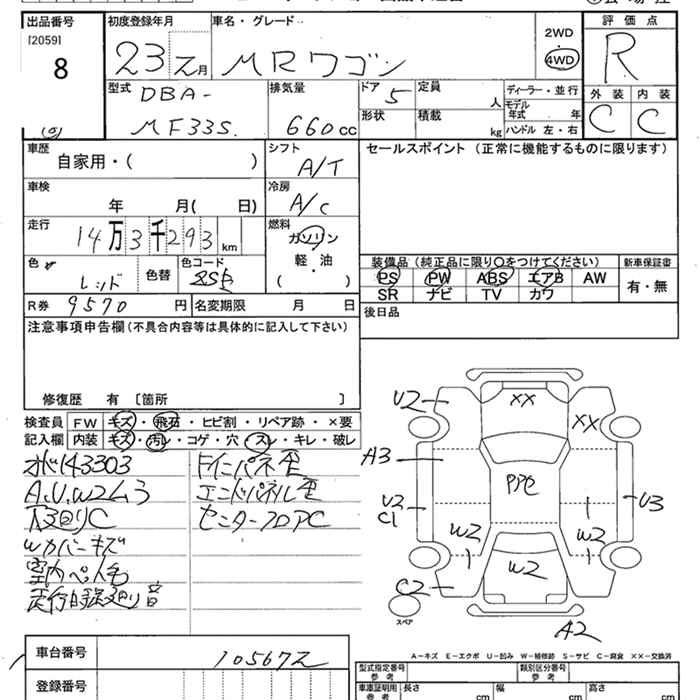 出品番号 初度登録年月 車名・グレード 2WD 評価点
[2059]
8 23 2月 MRワゴン 4WD R
型式 排気量 ドア 定員 ディーラー・並行 外装 内装
DBA- 5 人 モデル年式 年
MF33S 660cc 形状 積載 kg ハンドル 左・右 C C
車歴 シフト セールスポイント(正常に機能するものに限ります)
自家用・( ) A/T
車検 冷房
年 月( 日) A/C
走行 燃料
14万3千293km ガソリン
色 色コード 軽・油
レッド 色替 ( )
装備品(純正品に限り○をつけてください) 新車保証書
PS PW ABS エアB AW 有・無
SR ナビ TV カワ
R券 9570円 名変期限 月 日
後日品
注意事項申告欄(不具合内容等は具体的に記入して下さい)
修復歴 有 [箇所 ]
検査員 FW キズ・飛石・ヒビ割・リペア跡・×要
記入欄 内装 キズ・汚レ・コゲ・穴・スレ・キレ・破レ
143303 バックパネル歪
A.U.W2ム3 エンドパネル歪
下廻りC センターフロアC
Wカバーキズ
室内ペイ人毛
走行時異廻り音
U2 XX XX
A3 PPC
U2 U3
C1 W2 W2
W2
C2
スペア A2
A-キズ E-エクボ U-凹み W-補修跡 S-サビ C-腐食 XX-交換済
車台番号 105672
型式指定番号 類別区分番号
参考 参考
登録番号
車庫証明用 長さ cm 幅 cm 高さ cm
参考